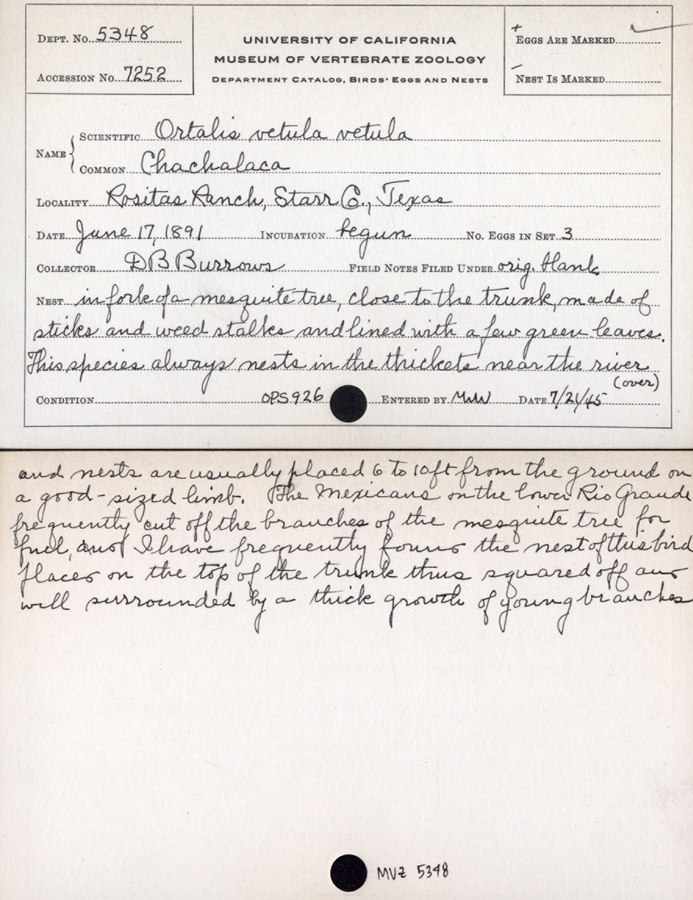 DEPT. NO. 5348
ACCESSION NO. 7252
UNIVERSITY OF CALIFORNIA
MUSEUM OF VERTEBRATE ZOOLOGY
DEPARTMENT CATALOG, BIRDS' EGGS AND NESTS
+
EGGS ARE MARKED ✓
–
NEST IS MARKED
NAME { SCIENTIFIC Ortalis vetula vetula
COMMON Chachalaca
LOCALITY Rositas Ranch, Starr Co., Texas
DATE June 17, 1891 INCUBATION begun NO. EGGS IN SET 3
COLLECTOR D B Burrows FIELD NOTES FILED UNDER orig. blank
NEST in fork of a mesquite tree, close to the trunk, made of
sticks and weed stalks and lined with a few green leaves.
This species always nests in the thickets near the river
(over)
CONDITION OPS926 ENTERED BY MWW DATE 7/21/45
and nests are usually placed 6 to 10 ft from the ground on
a good-sized limb. The Mexicans on the lower Rio Grande
frequently cut off the branches of the mesquite tree for
fuel, and I have frequently found the nest of this bird
placed on the top of the trunk thus squared off and
well surrounded by a thick growth of young branches
MVZ 5348